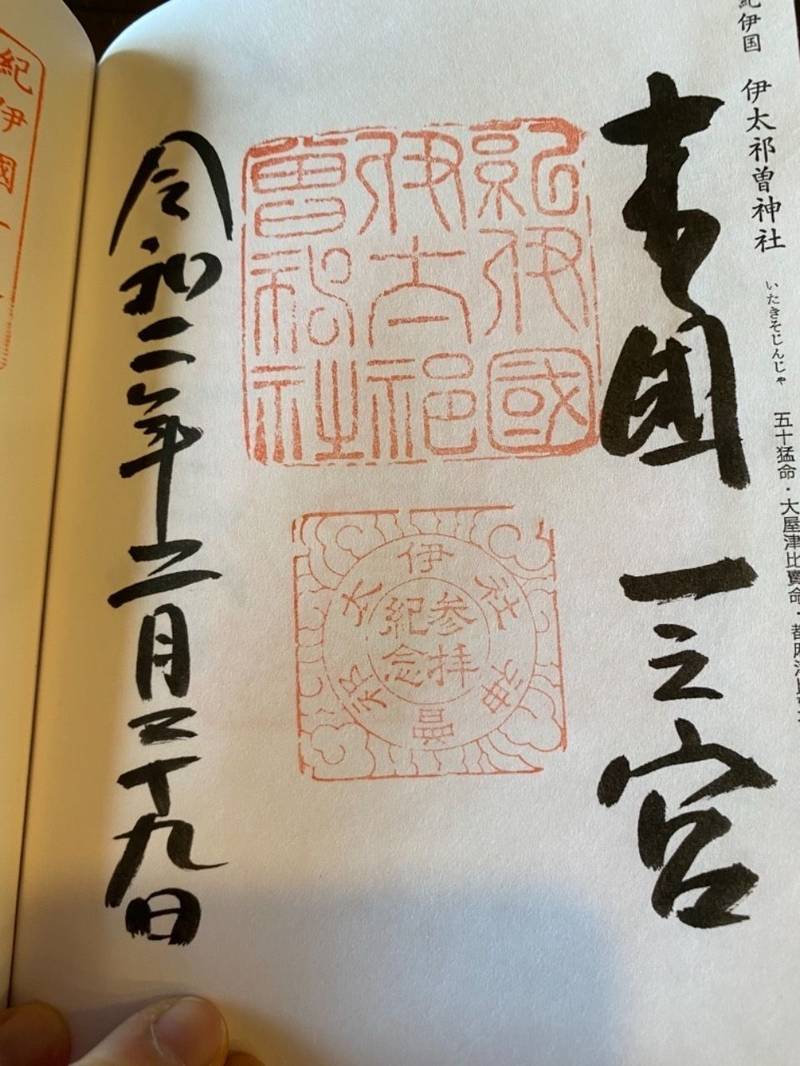 紀伊国 伊太祁曽神社 いたきそじんじゃ 五十猛命・大屋津比賣命・都麻津
国 一之宮
紀伊國
伊太祁
曽神社
伊太祁曽神社
参拝
紀念
令和二年二月二十九日
紀伊國一